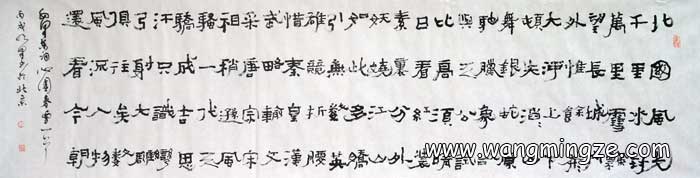 北國風光
千里冰封
萬里雪飄
望長城內
外惟餘莽莽
大河上下
頓失滔滔山
舞銀蛇原
馳蠟象欲
與天公試
比高須晴
日看紅裝
素裹分外
妖嬈江山
如此多嬌
引無數英
雄競折腰
惜秦皇漢
武略輸文
采唐宗宋
祖稍遜風
騷一代天
驕成吉思
汗只識彎
弓射大雕
俱往矣數
風流人物
還看今朝
詞沁園春雪一首
丙戌於北京
www.wangmingze.com